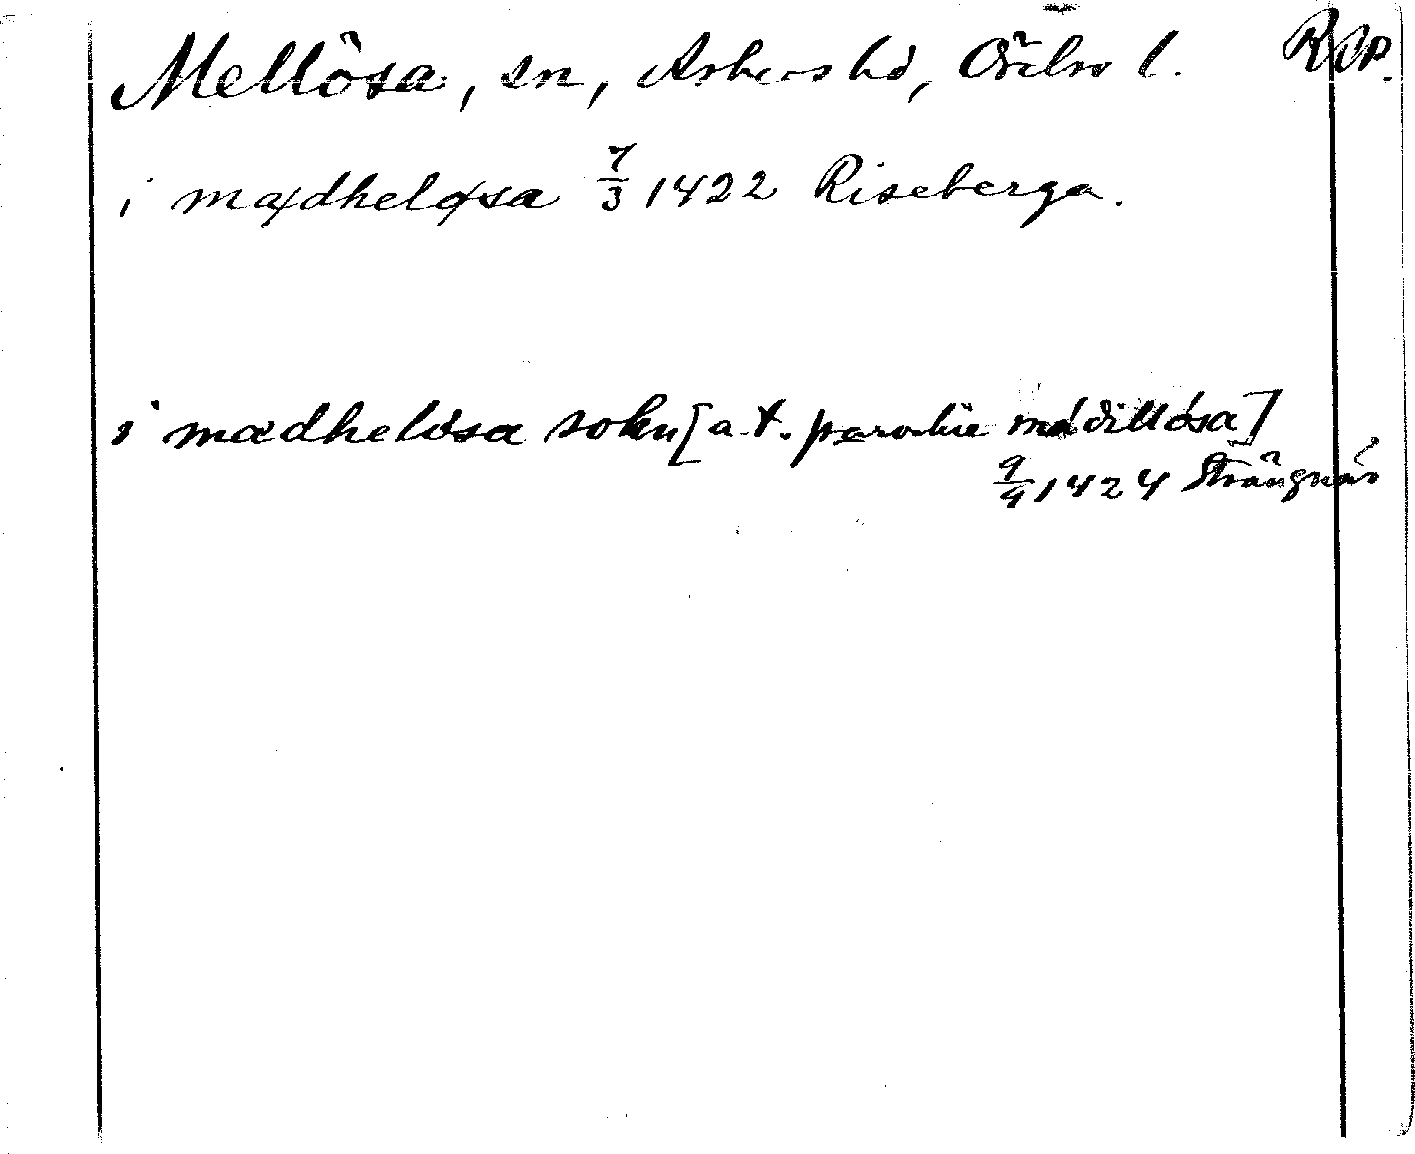 Mellösa, sn, Askers hd, Örebro l. RAP.
i mædheløsa 7/3 1422 Riseberga.
i mædhelósa sokn [a.t. parochie mædillósa]
9/4 1424 Strängnäs